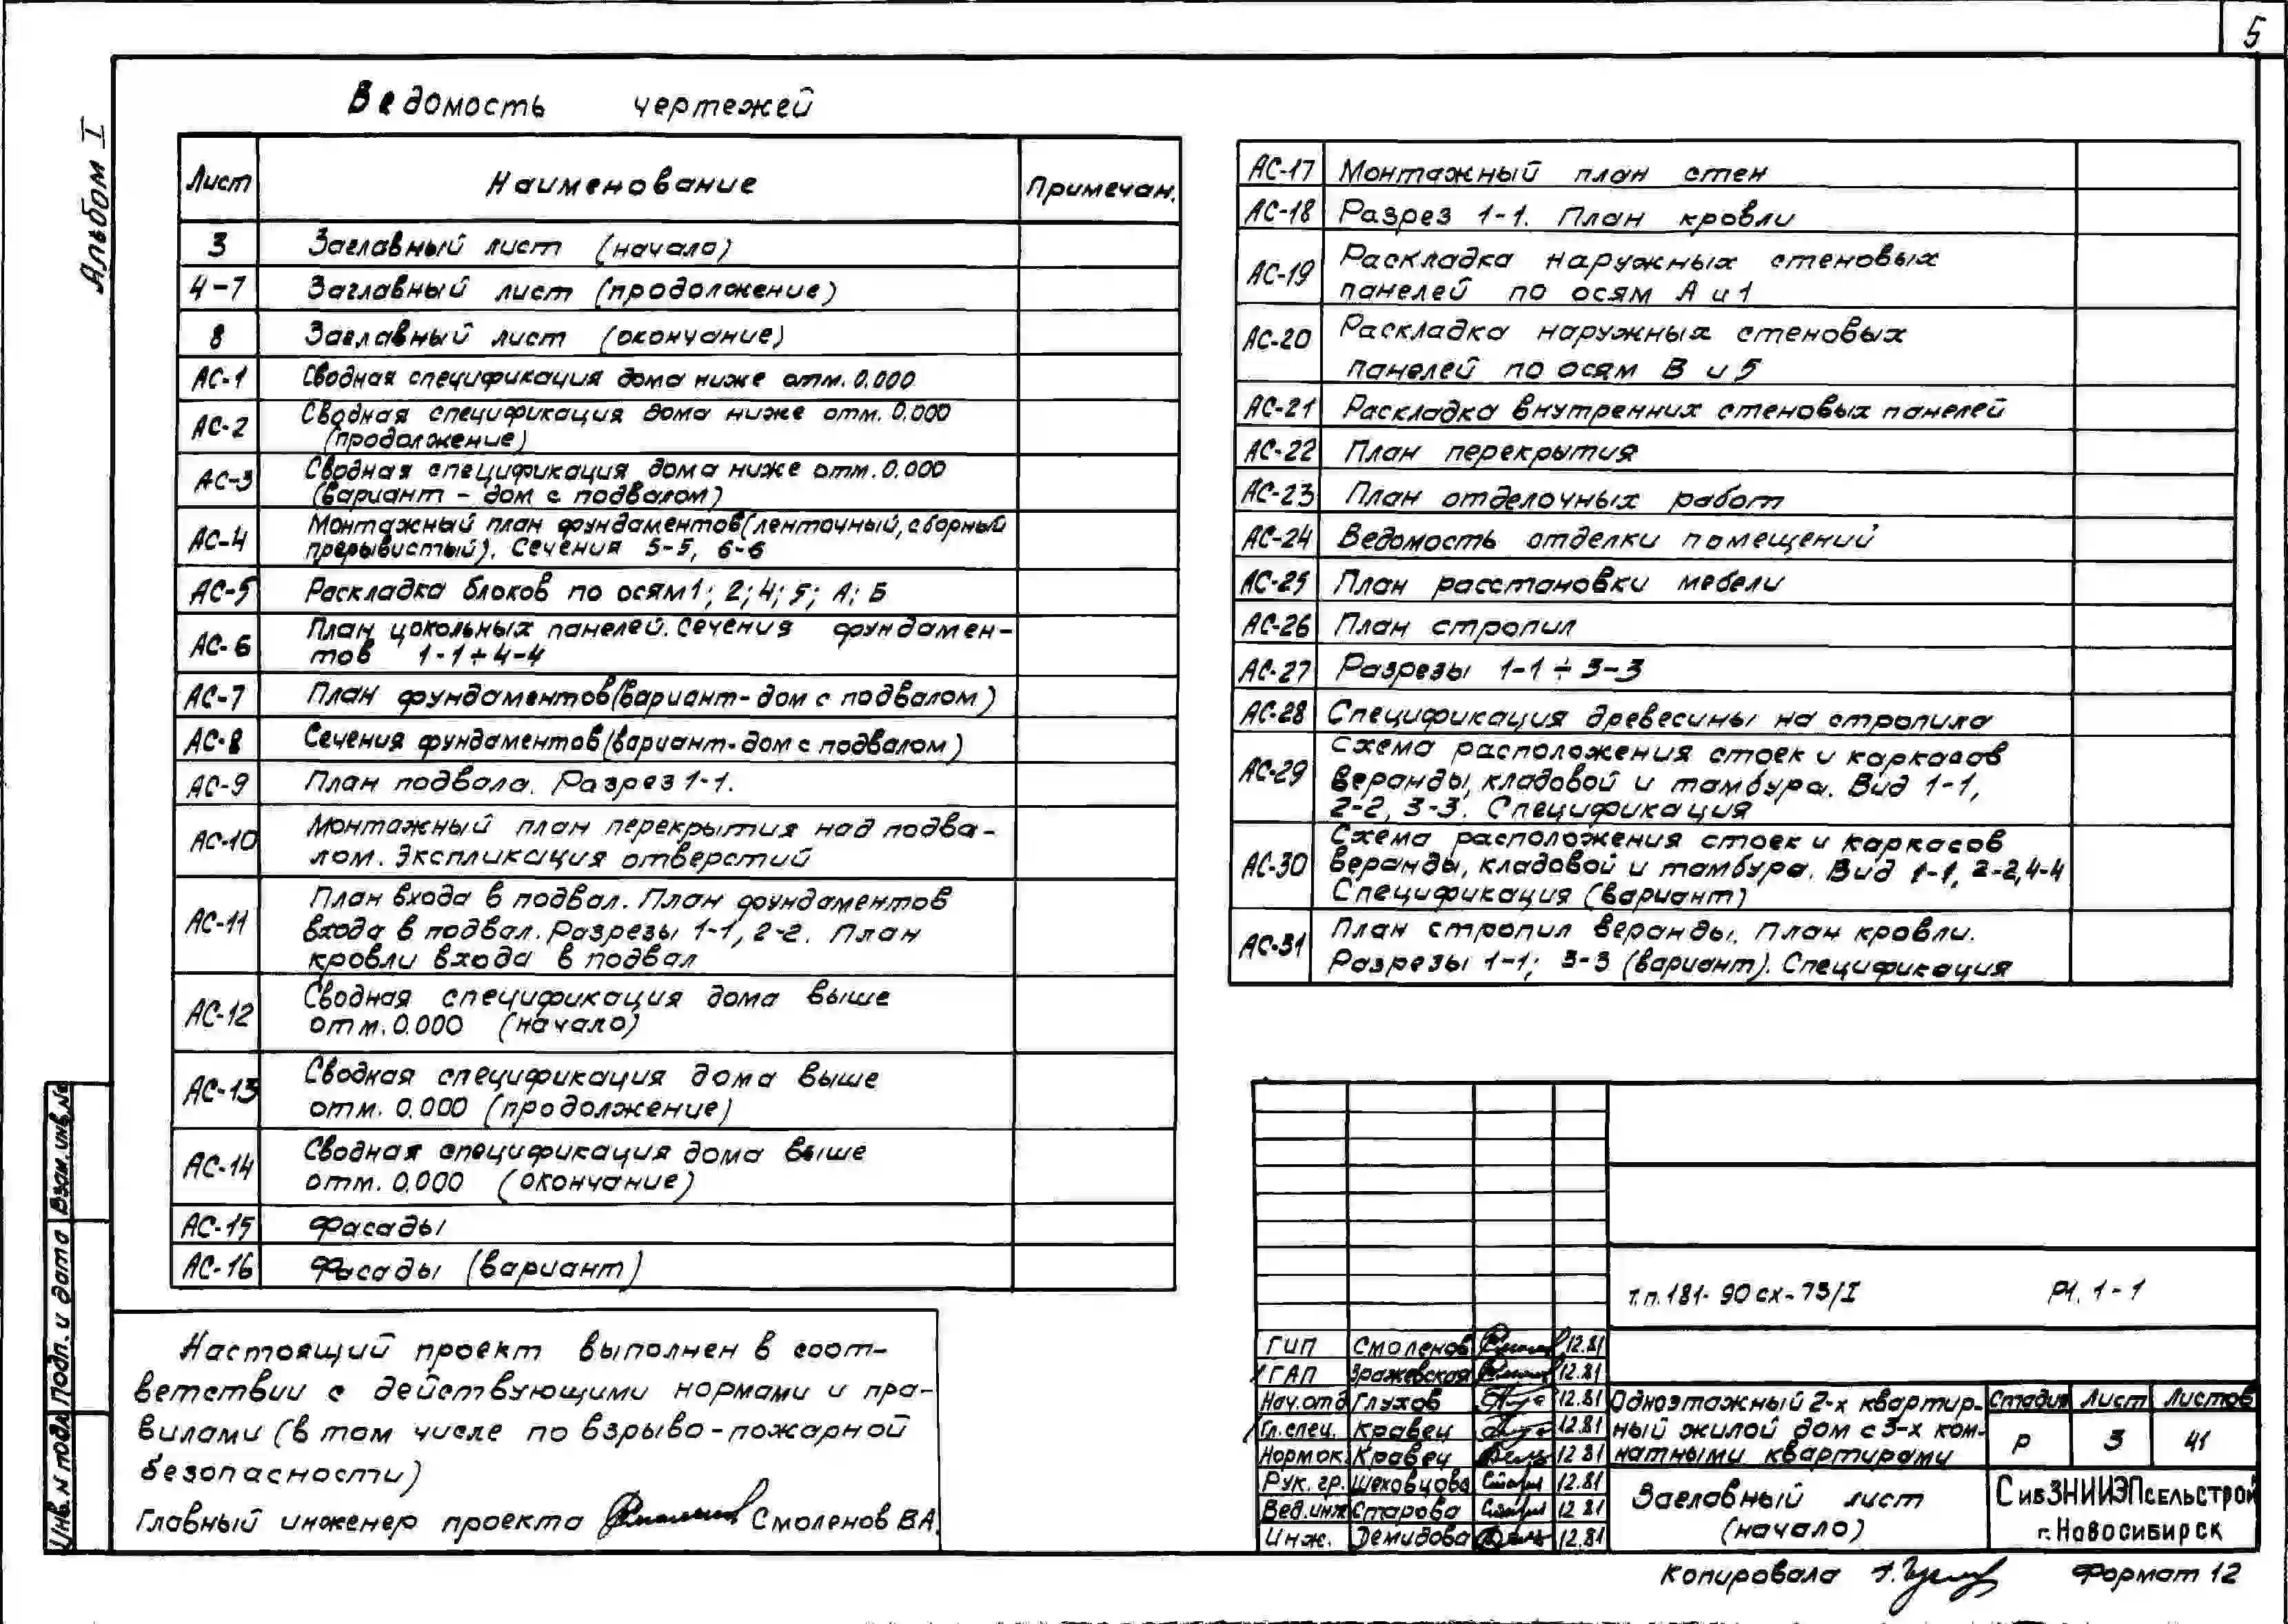 5
Альбом I
Ведомость чертежей
Лист Наименование Примечан.
3 Заглавный лист (начало)
4-7 Заглавный лист (продолжение)
8 Заглавный лист (окончание)
АС-1 Сводная спецификация дома ниже отм. 0.000
АС-2 Сводная спецификация дома ниже отм. 0.000
(продолжение)
АС-3 Сводная спецификация дома ниже отм. 0.000
(вариант - дом с подвалом)
АС-4 Монтажный план фундаментов (ленточный, сборный
прерывистый). Сечения 5-5, 6-6
АС-5 Раскладка блоков по осям 1; 2; 4; 5; А; Б
АС-6 План цокольных панелей. Сечения фундамен-
тов 1-1÷4-4
АС-7 План фундаментов (вариант- дом с подвалом)
АС-8 Сечения фундаментов (вариант- дом с подвалом)
АС-9 План подвала. Разрез 1-1.
АС-10 Монтажный план перекрытия над подва-
лом. Экспликация отверстий
АС-11 План входа в подвал. План фундаментов
входа в подвал. Разрезы 1-1, 2-2. План
кровли входа в подвал
АС-12 Сводная спецификация дома выше
отм. 0.000 (начало)
АС-13 Сводная спецификация дома выше
отм. 0.000 (продолжение)
АС-14 Сводная спецификация дома выше
отм. 0.000 (окончание)
АС-15 Фасады
АС-16 Фасады (вариант)
АС-17 Монтажный план стен
АС-18 Разрез 1-1. План кровли
АС-19 Раскладка наружных стеновых
панелей по осям А и 1
АС-20 Раскладка наружных стеновых
панелей по осям В и 5
АС-21 Раскладка внутренних стеновых панелей
АС-22 План перекрытия
АС-23 План отделочных работ
АС-24 Ведомость отделки помещений
АС-25 План расстановки мебели
АС-26 План стропил
АС-27 Разрезы 1-1 ÷ 3-3
АС-28 Спецификация древесины на стропила
АС-29 Схема расположения стоек и каркасов
веранды, кладовой и тамбура. Вид 1-1,
2-2, 3-3. Спецификация
АС-30 Схема расположения стоек и каркасов
веранды, кладовой и тамбура. Вид 1-1, 2-2, 4-4
Спецификация (вариант)
АС-31 План стропил веранды. План кровли.
Разрезы 1-1; 3-3 (вариант). Спецификация
Настоящий проект выполнен в соот-
ветствии с действующими нормами и пра-
вилами (в том числе по взрыво-пожарной
безопасности)
Главный инженер проекта Смоленов В.А.
Инв. N подл. Подп. и дата Взам. инв. №
т.п. 181-90 сх-73/I Р1. 1-1
ГИП Смоленов 12.81
ГАП Зражевская 12.81
Нач. отд Глухов 12.81
Гл. спец. Кравец 12.81
Нормок. Кравец 12.81
Рук. гр. Шеховцова 12.81
Вед. инж Старова 12.81
Инж. Демидова 12.81
Одноэтажный 2-х квартир-
ный жилой дом с 3-х ком-
натными квартирами
Стадия Лист Листов
Р 3 41
Заглавный лист
(начало)
СибЗНИИЭПсельстрой
г. Новосибирск
Копировала Формат 12